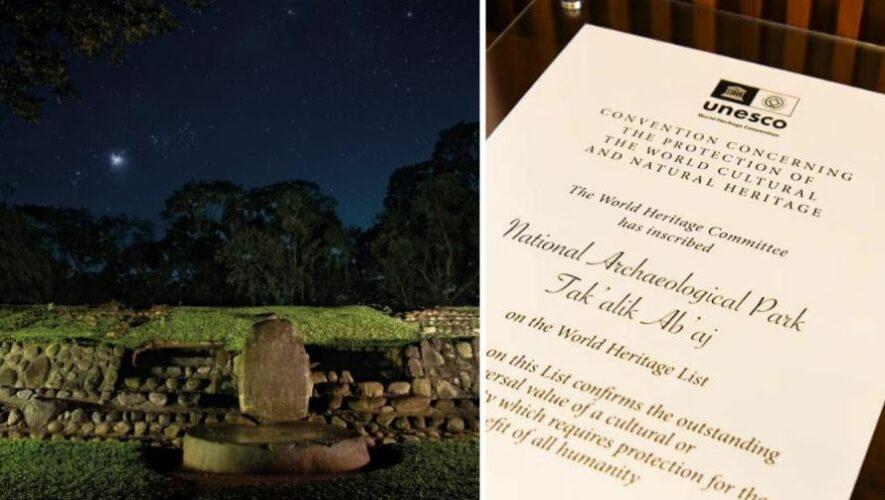 unesco
World Heritage Convention
CONVENTION CONCERNING
THE PROTECTION OF
THE WORLD CULTURAL
AND NATURAL HERITAGE
The World Heritage Committee
has inscribed
National Archaeological Park
Tak'alik Ab'aj
on the World Heritage List
on this List confirms the outstanding
versal value of a cultural or
ty which requires protection for the
efit of all humanity